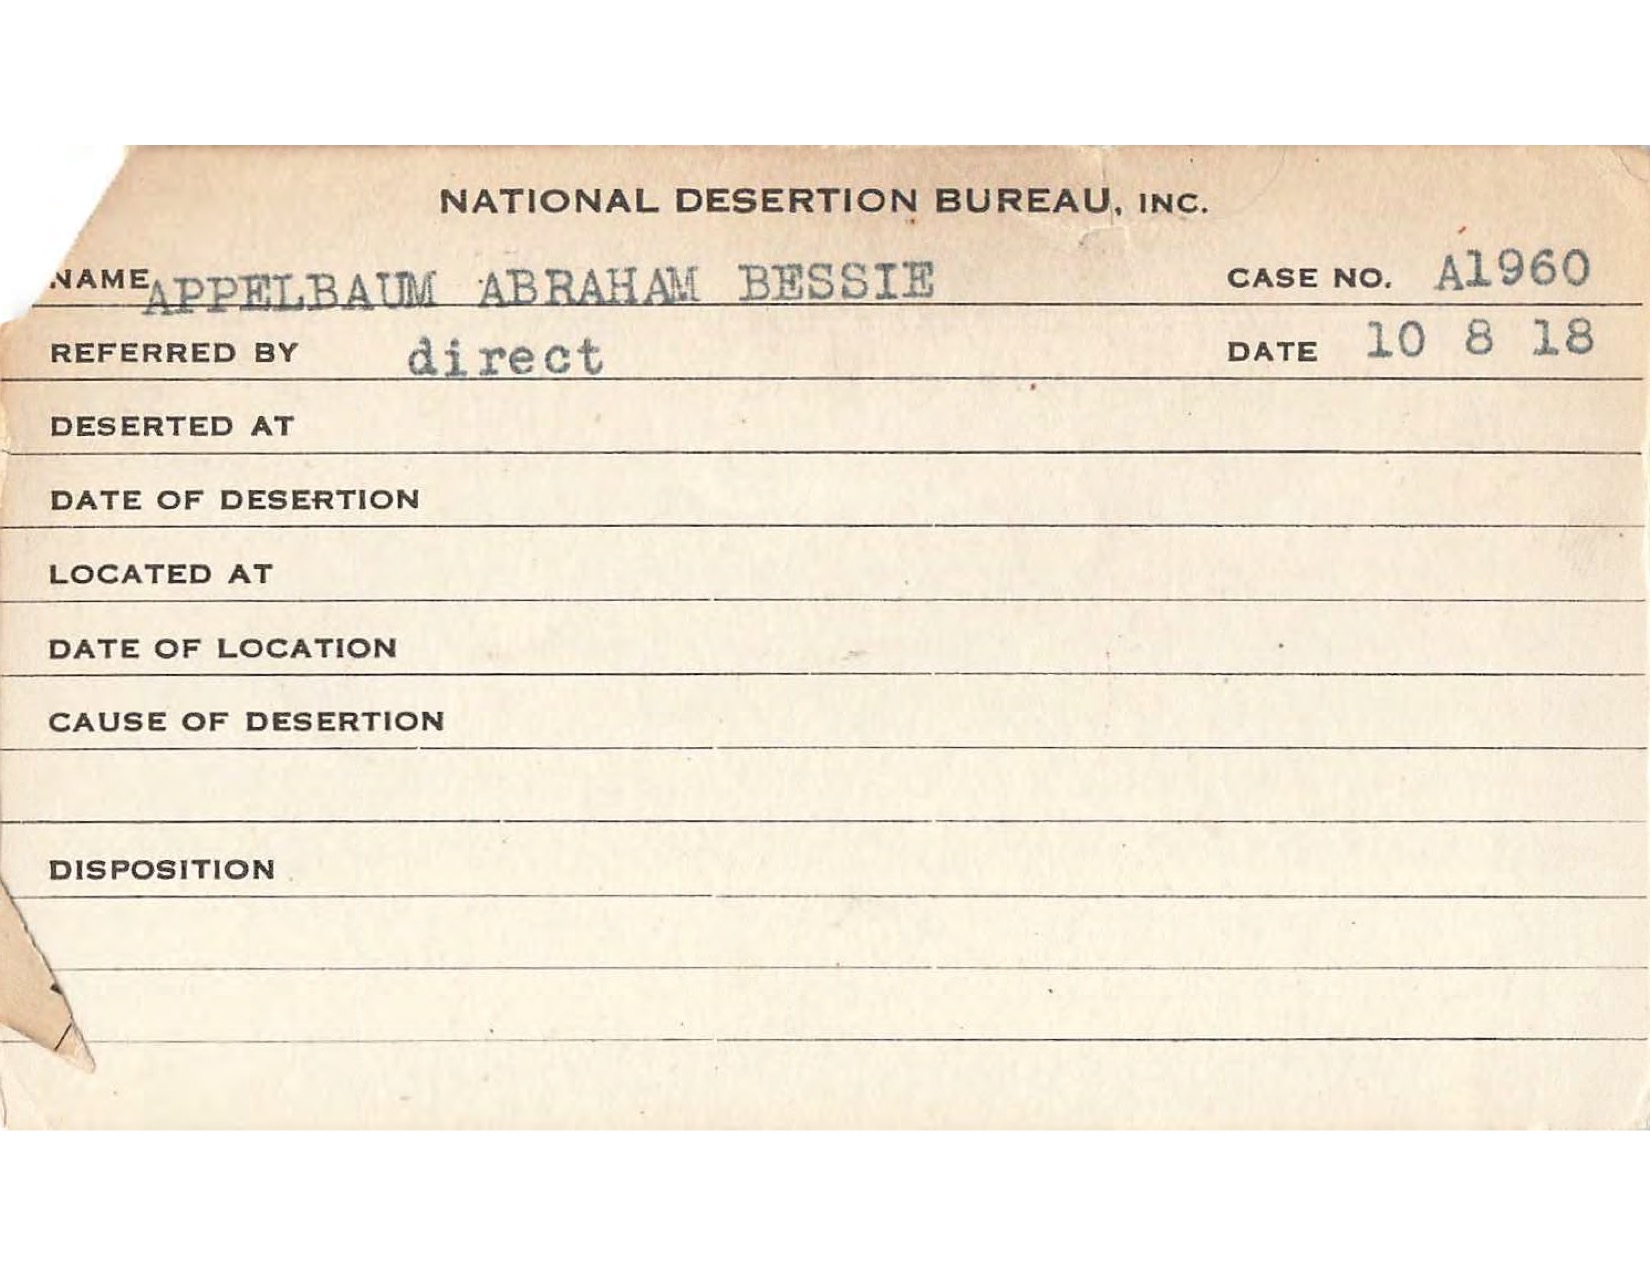 NATIONAL DESERTION BUREAU, INC.
NAME APPELBAUM ABRAHAM BESSIE CASE NO. A1960
REFERRED BY direct DATE 10 8 18
DESERTED AT
DATE OF DESERTION
LOCATED AT
DATE OF LOCATION
CAUSE OF DESERTION
DISPOSITION